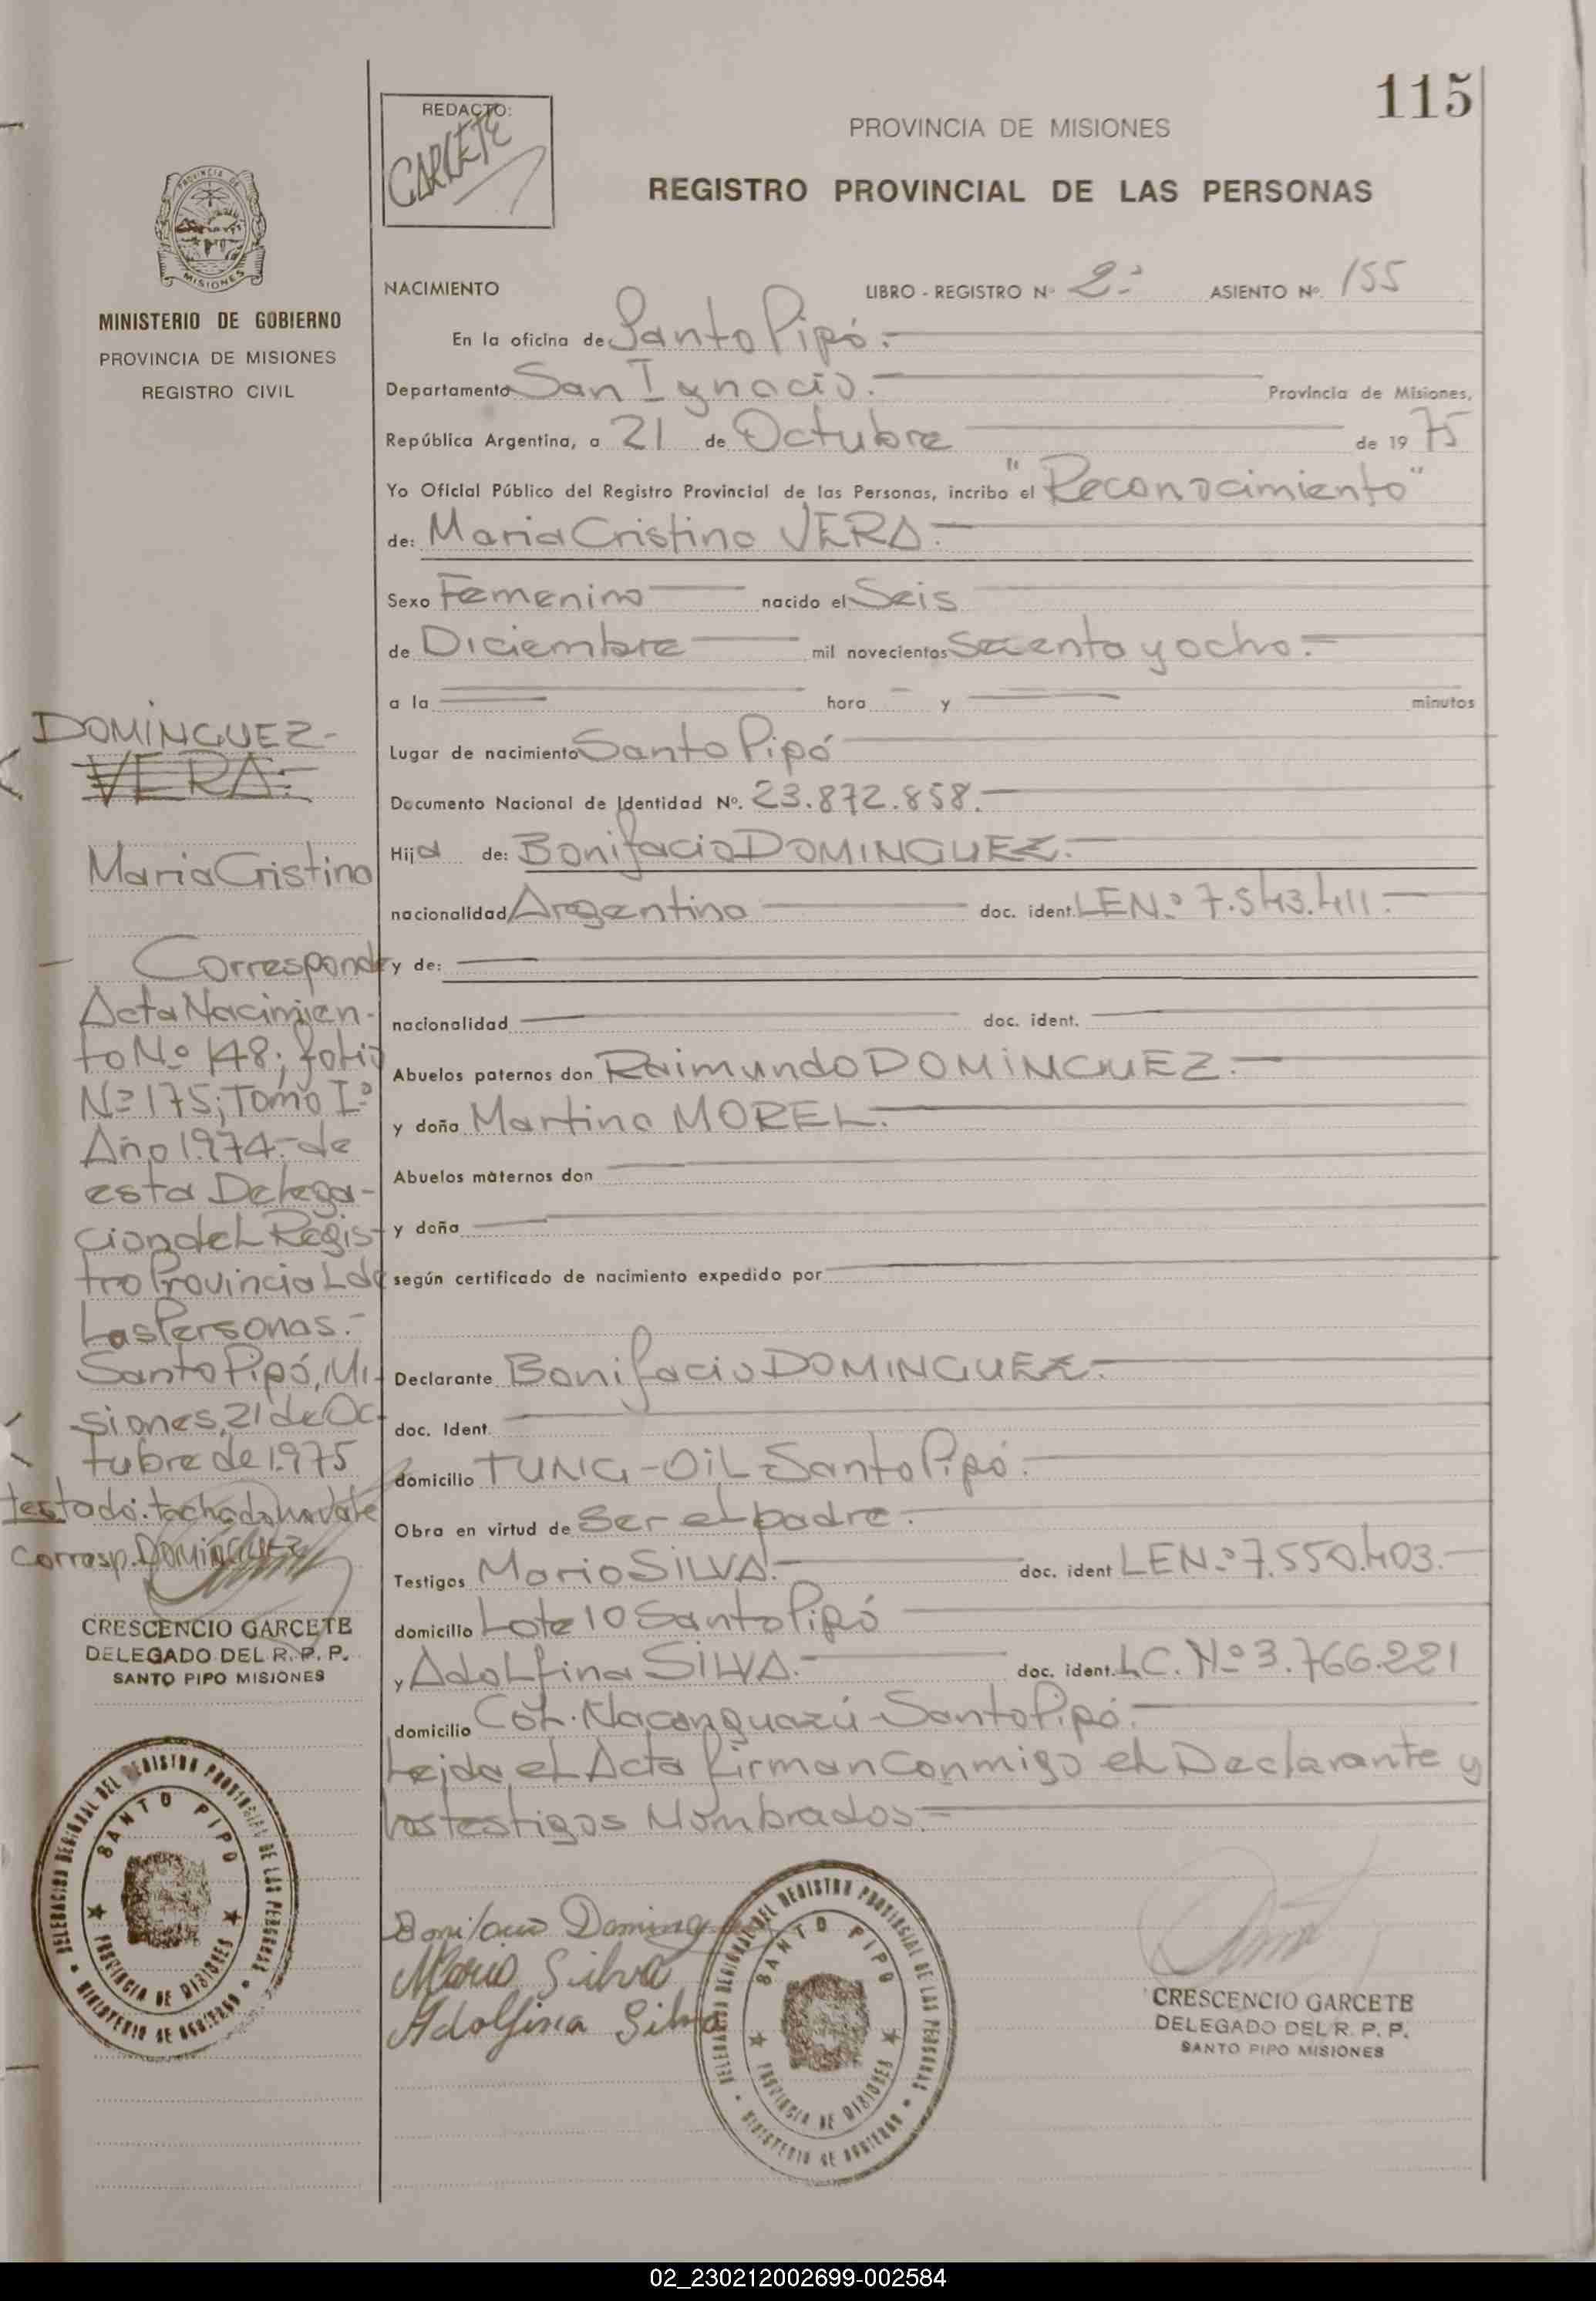 115
REDACTO:
GARCETE
PROVINCIA DE MISIONES
REGISTRO PROVINCIAL DE LAS PERSONAS
PROVINCIA DE
MISIONES
MINISTERIO DE GOBIERNO
PROVINCIA DE MISIONES
REGISTRO CIVIL
DOMINGUEZ-
VERA.-
Maria Cristina
Corresponde
Acta Nacimien-
to Nº 148; folio
Nº 175; Tomo I.º
Año 1.974.- de
esta Delega-
cion del Regis-
tro Provincial de
las Personas.-
Santo Pipó, Mi-
siones, 21 de Oc-
tubre de 1.975
testado: tachado no vale
corresp. DOMINGUEZ
CRESCENCIO GARCETE
DELEGADO DEL R. P. P.
SANTO PIPO MISIONES
DELEGACION REGIONAL DEL REGISTRO PROVINCIAL DE LAS PERSONAS
SANTO PIPO
PROVINCIA DE MISIONES
MINISTERIO DE GOBIERNO
NACIMIENTO LIBRO - REGISTRO Nº 2º- ASIENTO Nº. 155
En la oficina de Santo Pipó.-
Departamento San Ignacio.- Provincia de Misiones,
República Argentina, a 21 de Octubre de 1975
Yo Oficial Público del Registro Provincial de las Personas, incribo el "Reconocimiento"
de: Maria Cristina VERA.-
Sexo Femenino nacido el Seis
de Diciembre mil novecientos Secenta y ocho.-
a la hora y minutos
Lugar de nacimiento Santo Pipó
Documento Nacional de Identidad Nº. 23.872.858.-
Hija de: Bonifacio DOMINGUEZ.-
nacionalidad Argentina doc. ident. LEN.º 7.543.411.-
y de:
nacionalidad doc. ident.
Abuelos paternos don Raimundo DOMINGUEZ.-
y doña Martina MOREL.-
Abuelos maternos don
y doña
según certificado de nacimiento expedido por
Declarante Bonifacio DOMINGUEZ.-
doc. Ident.
domicilio TUNG-OIL-Santo Pipó.-
Obra en virtud de Ser el padre.-
Testigos Mario SILVA.- doc. ident LEN.º 7.550.403.-
domicilio Lote 10 Santo Pipó
y Adolfina SILVA.- doc. ident. LC. Nº 3.766.221
domicilio Col. Ñacanguazú-Santo Pipó.-
Leida el Acta firman conmigo el Declarante y
los testigos Nombrados.-
Bonifacio Doming
Mario Silva
Adolfina Silva
DELEGACION REGIONAL DEL REGISTRO PROVINCIAL DE LAS PERSONAS
SANTO PIPO
PROVINCIA DE MISIONES
MINISTERIO DE GOBIERNO
CRESCENCIO GARCETE
DELEGADO DEL R. P. P.
SANTO PIPO MISIONES
02_230212002699-002584